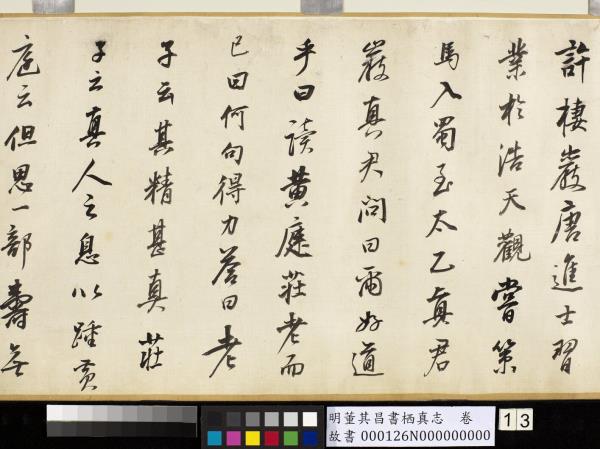 許棲巖唐進士習
業於浩天觀嘗策
馬入蜀至太乙真君
巖真君問曰爾好道
乎曰讀黃庭莊老而
已曰何句得力答曰老
子云其精甚真莊
子云真人之息以踵黃
庭云但思一部壽無
明董其昌書栖真志 卷
故書 000126N000000000
13